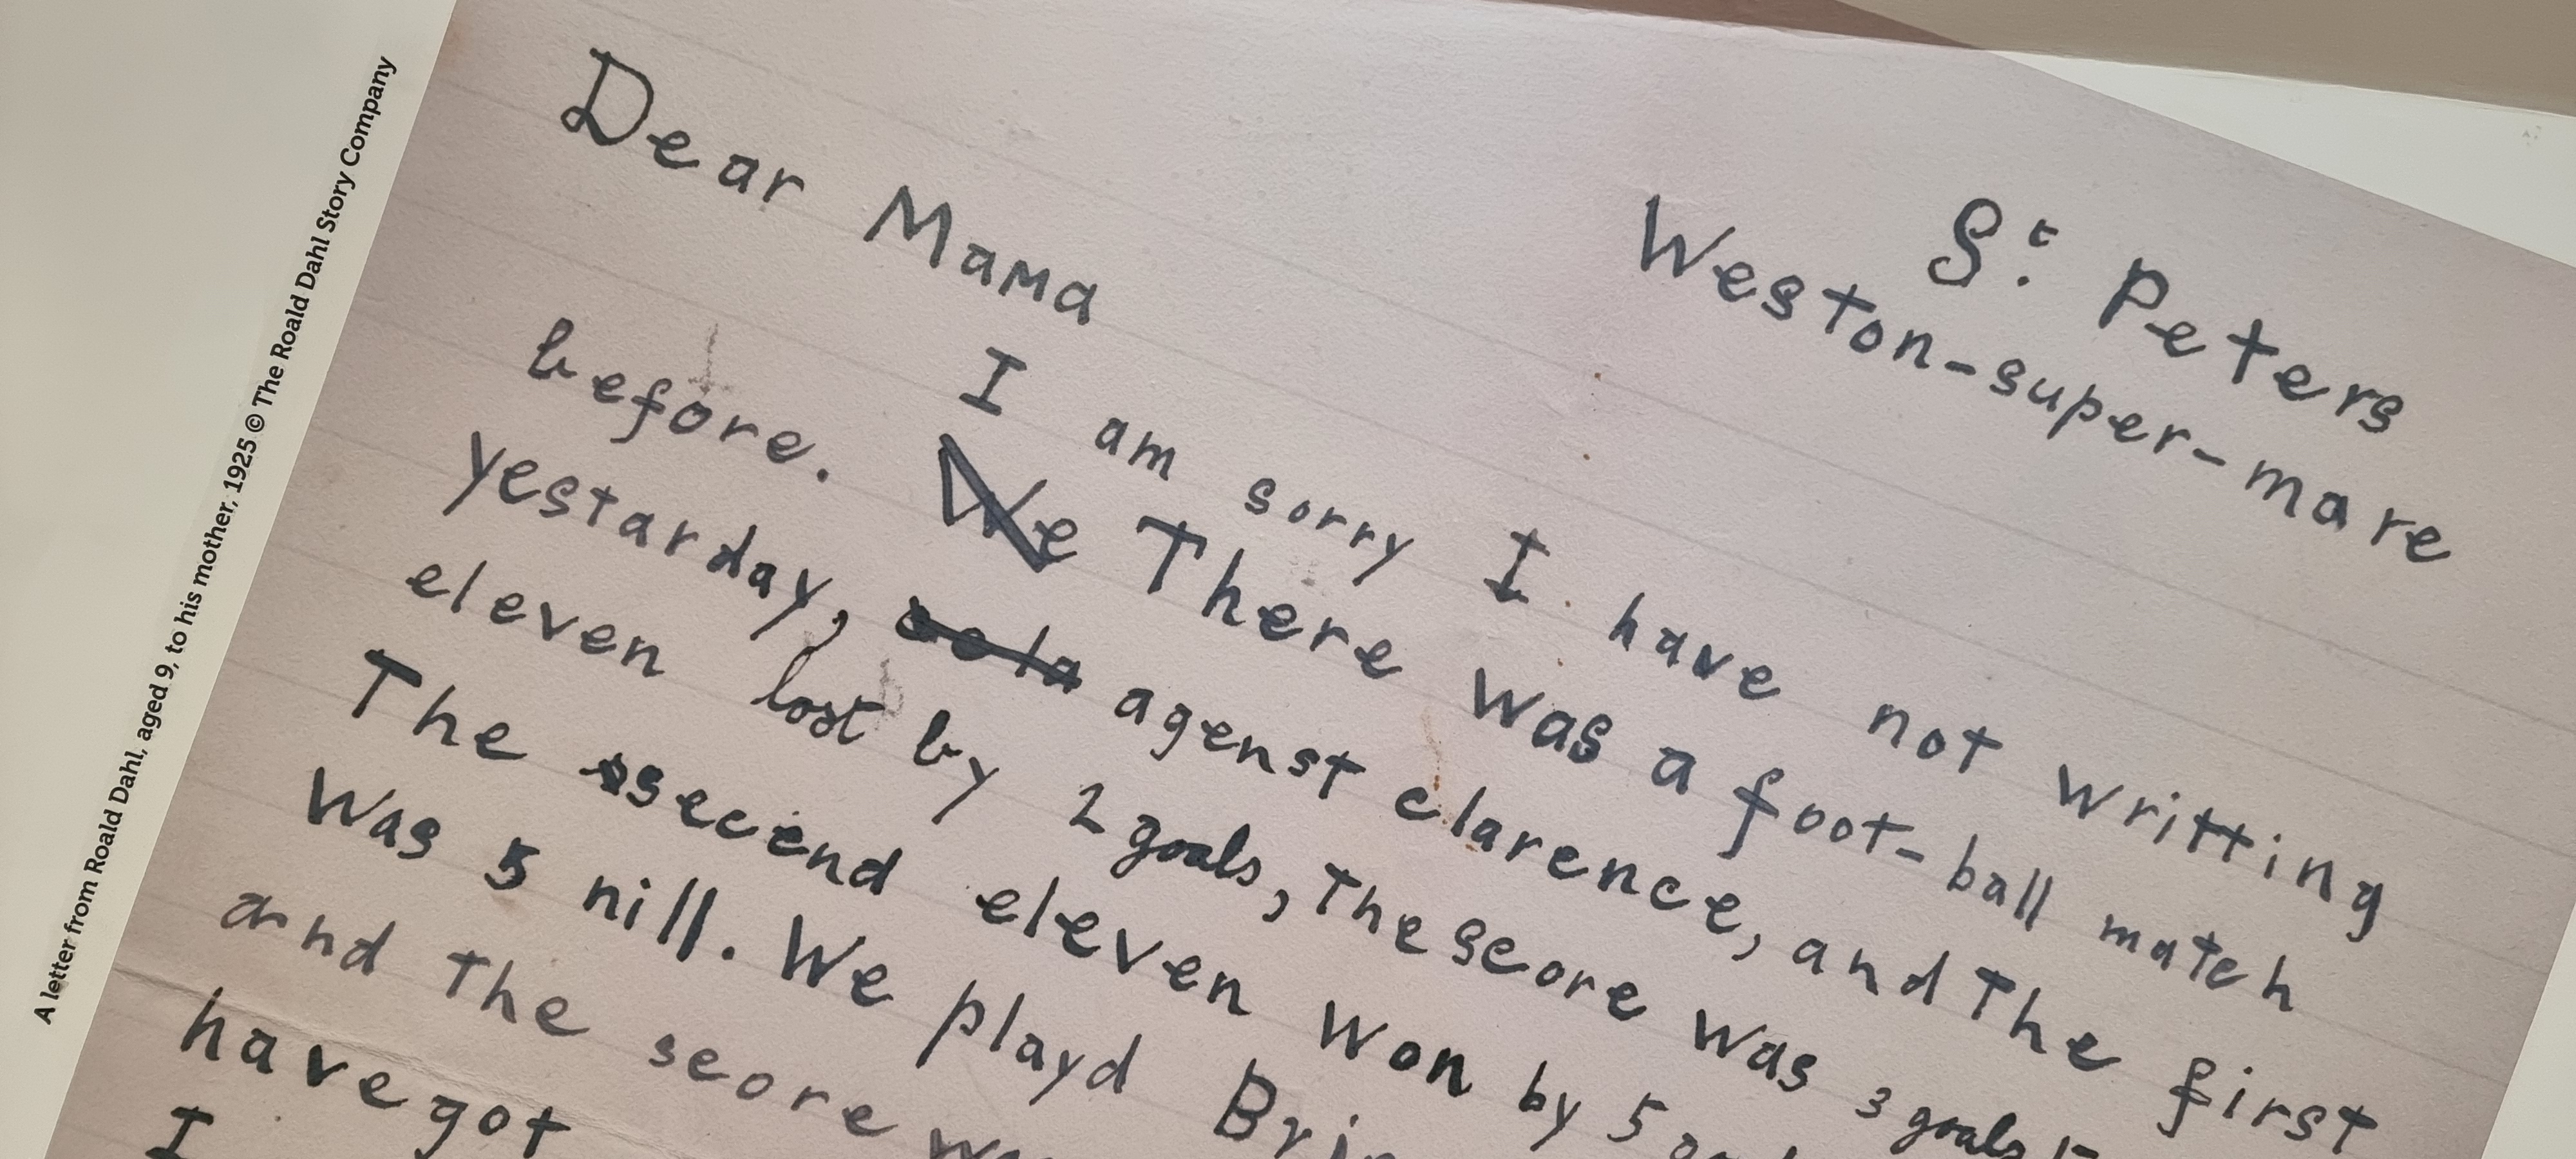 A letter from Roald Dahl, aged 9, to his mother, 1925 © The Roald Dahl Story Company
St. Peters
Weston-super-mare
Dear Mama
I am sorry I have not writting
before. We There was a foot-ball match
yestarday, agenst clarence, and The first
eleven lost by 2 goals, The score was 3 goals
The secend eleven won by 5
Was 5 nill. We playd
and The score
have got
I